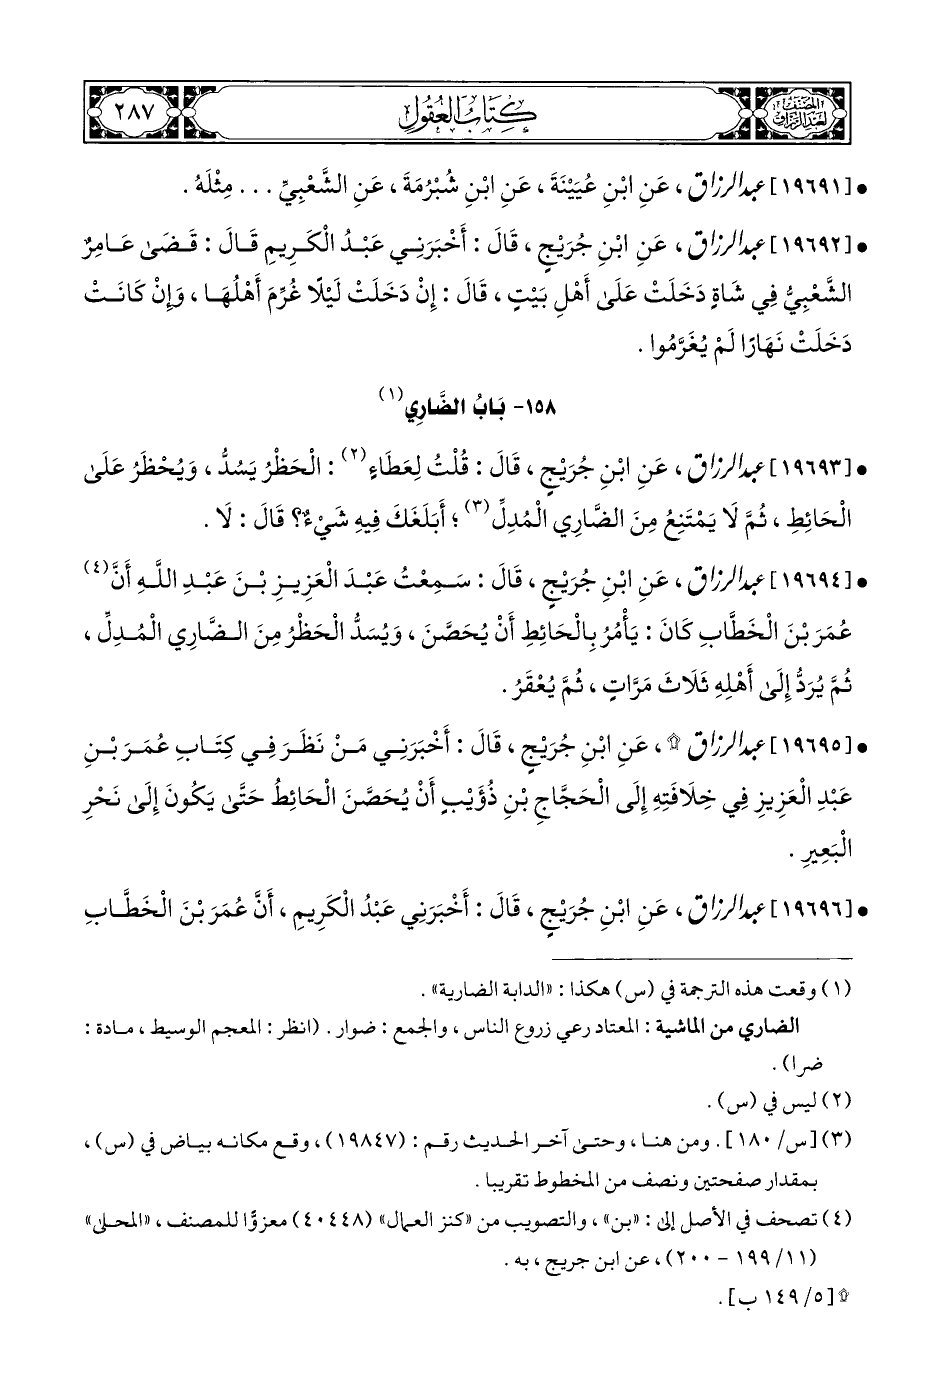 المصنف لعبد الرزاق
كتاب العقول
٢٨٧
• [١٩٦٩١] عبد الرزاق ، عَنِ ابْنِ عُيَيْنَةَ ، عَنِ ابْنِ شُبْرُمَةَ ، عَنِ الشَّعْبِيِّ . . . مِثْلَهُ .
• [١٩٦٩٢] عبد الرزاق ، عَنِ ابْنِ جُرَيْجٍ ، قَالَ : أَخْبَرَنِي عَبْدُ الْكَرِيمِ قَالَ : قَضَىٰ عَامِرٌ
الشَّعْبِيُّ فِي شَاةٍ دَخَلَتْ عَلَىٰ أَهْلِ بَيْتٍ ، قَالَ : إِنْ دَخَلَتْ لَيْلًا غُرِّمَ أَهْلُهَا ، وَإِنْ كَانَتْ
دَخَلَتْ نَهَارًا لَمْ يُغَرَّمُوا .
١٥٨- بَابُ الضَّارِي(١)
• [١٩٦٩٣] عبد الرزاق ، عَنِ ابْنِ جُرَيْجٍ ، قَالَ : قُلْتُ لِعَطَاءٍ(٢) : الْحَظْرُ يَسُدُّ ، وَيُحْظَرُ عَلَىٰ
الْحَائِطِ ، ثُمَّ لَا يَمْتَنِعُ مِنَ الضَّارِي الْمُدِلِّ(٣) ؛ أَبَلَغَكَ فِيهِ شَيْءٌ؟ قَالَ : لَا .
• [١٩٦٩٤] عبد الرزاق ، عَنِ ابْنِ جُرَيْجٍ ، قَالَ : سَمِعْتُ عَبْدَ الْعَزِيزِ بْنَ عَبْدِ اللَّهِ أَنَّ(٤)
عُمَرَ بْنَ الْخَطَّابِ كَانَ : يَأْمُرُ بِالْحَائِطِ أَنْ يُحَصَّنَ ، وَيُسَدُّ الْحَظْرُ مِنَ الضَّارِي الْمُدِلِّ ،
ثُمَّ يُرَدُّ إِلَىٰ أَهْلِهِ ثَلَاثَ مَرَّاتٍ ، ثُمَّ يُعْقَرُ .
• [١٩٦٩٥] عبد الرزاق ۩ ، عَنِ ابْنِ جُرَيْجٍ ، قَالَ : أَخْبَرَنِي مَنْ نَظَرَ فِي كِتَابِ عُمَرَ بْنِ
عَبْدِ الْعَزِيزِ فِي خِلَافَتِهِ إِلَى الْحَجَّاجِ بْنِ ذُؤَيْبٍ أَنْ يُحَصَّنَ الْحَائِطُ حَتَّىٰ يَكُونَ إِلَىٰ نَحْرِ
الْبَعِيرِ .
• [١٩٦٩٦] عبد الرزاق ، عَنِ ابْنِ جُرَيْجٍ ، قَالَ : أَخْبَرَنِي عَبْدُ الْكَرِيمِ ، أَنَّ عُمَرَ بْنَ الْخَطَّابِ
(١) وقعت هذه الترجمة في (س) هكذا : «الدابة الضارية» .
الضاري من الماشية : المعتاد رعي زروع الناس ، والجمع : ضوار . (انظر : المعجم الوسيط ، مادة :
ضرا) .
(٢) ليس في (س) .
(٣) [س/ ١٨٠] . ومن هنا ، وحتى آخر الحديث رقم : (١٩٨٤٧) ، وقع مكانه بياض في (س) ،
بمقدار صفحتين ونصف من المخطوط تقريبا .
(٤) تصحف في الأصل إلى : «بن» ، والتصويب من «كنز العمال» (٤٠٤٤٨) معزوًّا للمصنف ، «المحلى»
(١١/ ١٩٩ - ٢٠٠) ، عن ابن جريج ، به .
۩ [٥/ ١٤٩ ب] .